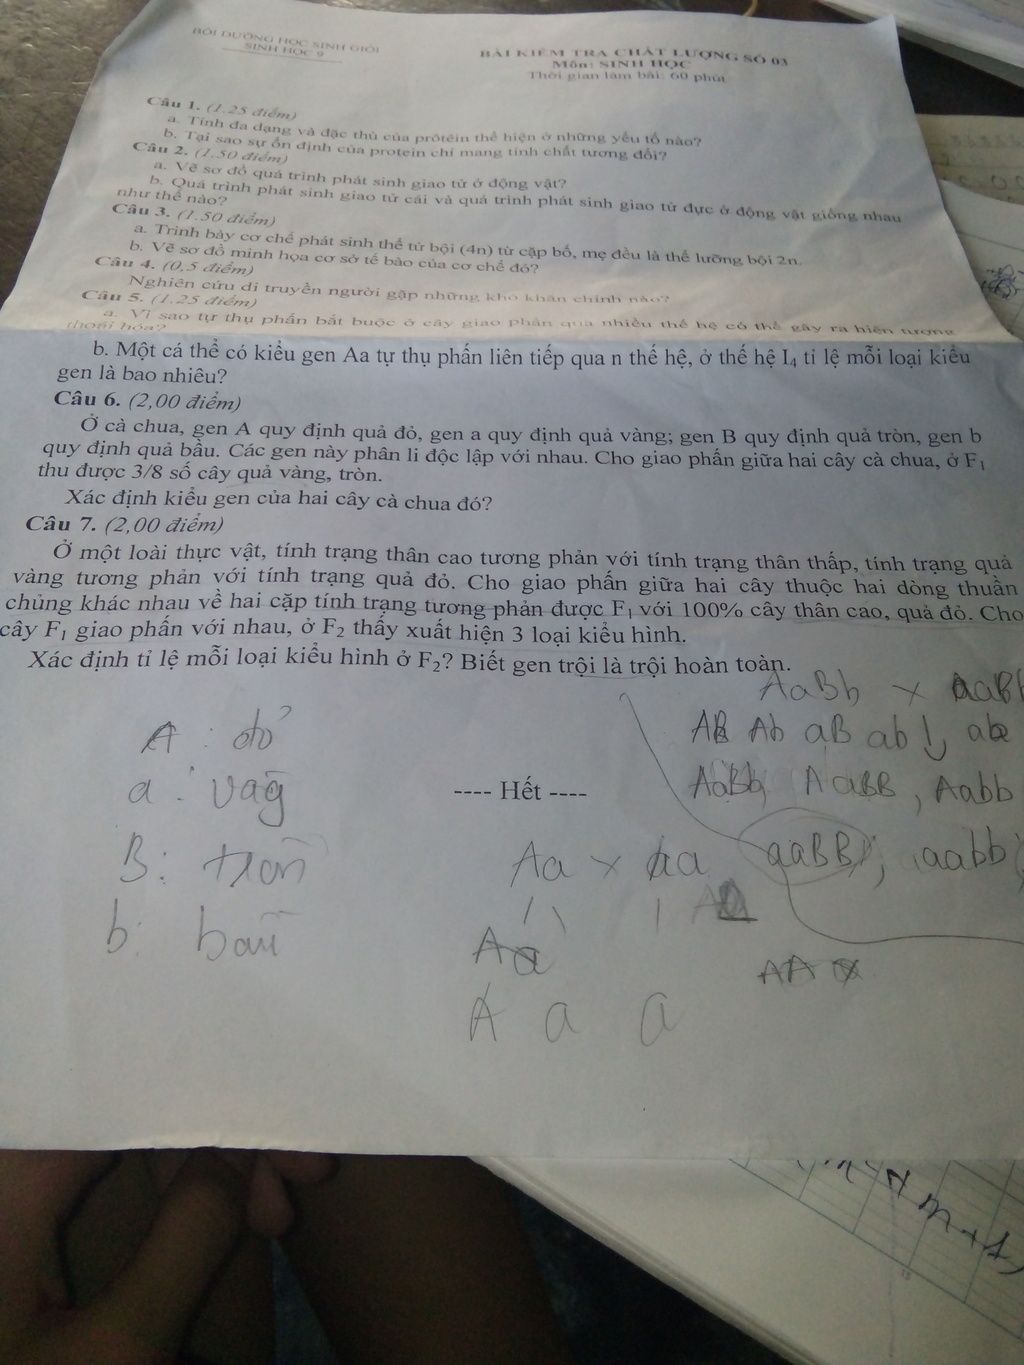 BỒI DƯỠNG HỌC SINH GIỎI
SINH HỌC 9
BÀI KIỂM TRA CHẤT LƯỢNG SỐ 03
Môn: SINH HỌC
Thời gian làm bài: 60 phút
Câu 1. (1.25 điểm)
a. Tính đa dạng và đặc thù của prôtêin thể hiện ở những yếu tố nào?
b. Tại sao sự ổn định của protein chỉ mang tính chất tương đối?
Câu 2. (1.50 điểm)
a. Vẽ sơ đồ quá trình phát sinh giao tử ở động vật?
b. Quá trình phát sinh giao tử cái và quá trình phát sinh giao tử đực ở động vật giống nhau
như thế nào?
Câu 3. (1.50 điểm)
a. Trình bày cơ chế phát sinh thể tứ bội (4n) từ cặp bố, mẹ đều là thể lưỡng bội 2n.
b. Vẽ sơ đồ minh họa cơ sở tế bào của cơ chế đó?
Câu 4. (0,5 điểm)
Nghiên cứu di truyền người gặp những khó khăn chính nào?
Câu 5. (1.25 điểm)
a. Vì sao tự thụ phấn bắt buộc ở cây giao phấn qua nhiều thế hệ có thể gây ra hiện tượng
thoái hóa?
b. Một cá thể có kiểu gen Aa tự thụ phấn liên tiếp qua n thế hệ, ở thế hệ I4 tỉ lệ mỗi loại kiểu
gen là bao nhiêu?
Câu 6. (2,00 điểm)
Ở cà chua, gen A quy định quả đỏ, gen a quy định quả vàng; gen B quy định quả tròn, gen b
quy định quả bầu. Các gen này phân li độc lập với nhau. Cho giao phấn giữa hai cây cà chua, ở F1
thu được 3/8 số cây quả vàng, tròn.
Xác định kiểu gen của hai cây cà chua đó?
Câu 7. (2,00 điểm)
Ở một loài thực vật, tính trạng thân cao tương phản với tính trạng thân thấp, tính trạng quả
vàng tương phản với tính trạng quả đỏ. Cho giao phấn giữa hai cây thuộc hai dòng thuần
chủng khác nhau về hai cặp tính trạng tương phản được F1 với 100% cây thân cao, quả đỏ. Cho
cây F1 giao phấn với nhau, ở F2 thấy xuất hiện 3 loại kiểu hình.
Xác định tỉ lệ mỗi loại kiểu hình ở F2? Biết gen trội là trội hoàn toàn.
AaBb x
AB Ab aB ab
A : đỏ
a : vàg
AaBb, AaBB, Aabb
---- Hết ----
B: tròn
Aa x aa
aaBB; aabb
b: bầu
Aa
AA
A a a